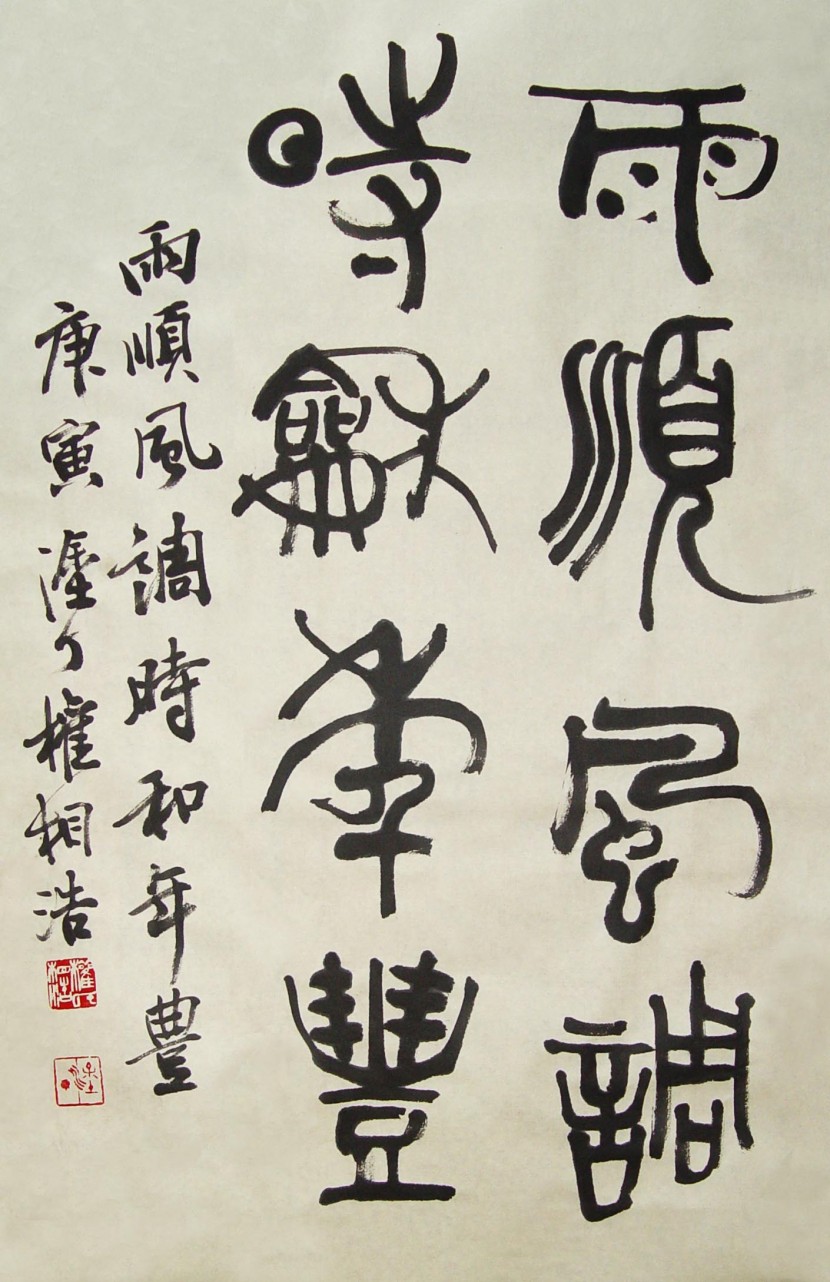 雨順風調
時龢年豐
雨順風調時和年豊
庚寅 塗丁 權相浩